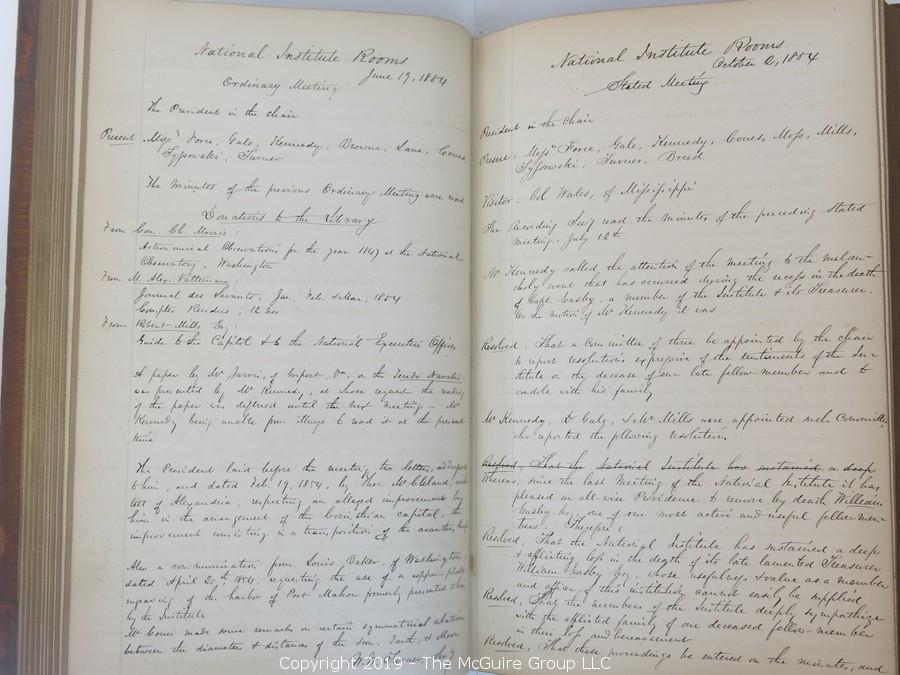 National Institute Rooms
June 19, 1854
Ordinary Meeting
The President in the chair
Present Messrs Force, Gale, Kennedy, Browne, Lane, Coues,
Tyssowski, Turner
The minutes of the previous Ordinary Meeting were read
Donations to the Library
From Com. Ch. Morris:
Astronomical Observations for the year 1847 at the National
Observatory, Washington
From M. Alex. Vattemare:
Journal des Savants, Jan. Feb. & Mar. 1854
Comptes Rendus, 12 nos
From Robert Mills Esq:
Guide to the Capitol & to the National Executive Offices
A paper by Mr Jarvis, of Gosport, Va, on the Teredo Navalis
was presented by Mr Kennedy, at whose request the reading
of the paper was deferred until the next meeting — Mr
Kennedy being unable from illness to read it at the present
time
The President laid before the meeting two letters, addressed
to him, and dated Feb. 17, 1854, by Thos. McCleland,
tect of Alexandria, respecting an alleged improvement by
him in the arrangement of the Corinthian capital, the
improvement consisting in a transposition of the acanthus
Also a communication from Louis Baker, of Washington
dated April 20th 1854, requesting the use of a copper-plate
engraving of the harbor of Port Mahon formerly presented
by the Institute
Mr Coues made some remarks on certain symmetrical relations
between the diameters & distances of the Sun, Earth, & Moon
Turner Sec'y
National Institute Rooms
October 2, 1854
Stated Meeting
President in the Chair
Present: Messrs Force, Gale, Kennedy, Coues, Moss, Mills,
Tyssowski, Turner, Breed
Visitor: Col Wales, of Mississippi
The Recording Sec'y read the minutes of the preceding Stated
meeting, July 12th
Mr Kennedy called the attention of the meeting to the melan-
choly event that has occurred during the recess in the death
of Capt. Easby, a member of the Institute & its Treasurer.
On the motion of Mr Kennedy it was
Resolved, That a Committee of three be appointed by the chair
to report resolutions expressive of the sentiments of the In-
stitute on the decease of our late fellow-member and to
condole with his family
Mr Kennedy, Dr Gale, & Mr Mills were appointed such Committee,
who reported the following resolutions:
Resolved, That the National Institute has sustained a deep
Whereas, since the last Meeting of the National Institute it has
pleased an all-wise Providence to remove by death William
Easby Esq, one of our most active and useful fellow-mem-
bers: Therefore,
Resolved, That the National Institute has sustained a deep
& afflicting loss in the death of its late lamented Treasurer
William Easby Esq, whose usefulness & value as a member
and officer of this institution cannot easily be supplied
Resolved, That the members of the Institute deeply sympathize
with the afflicted family of our deceased fellow-member
in their loss and bereavement
Resolved, That these proceedings be entered on the minutes, and
Copyright 2019 - The McGuire Group LLC